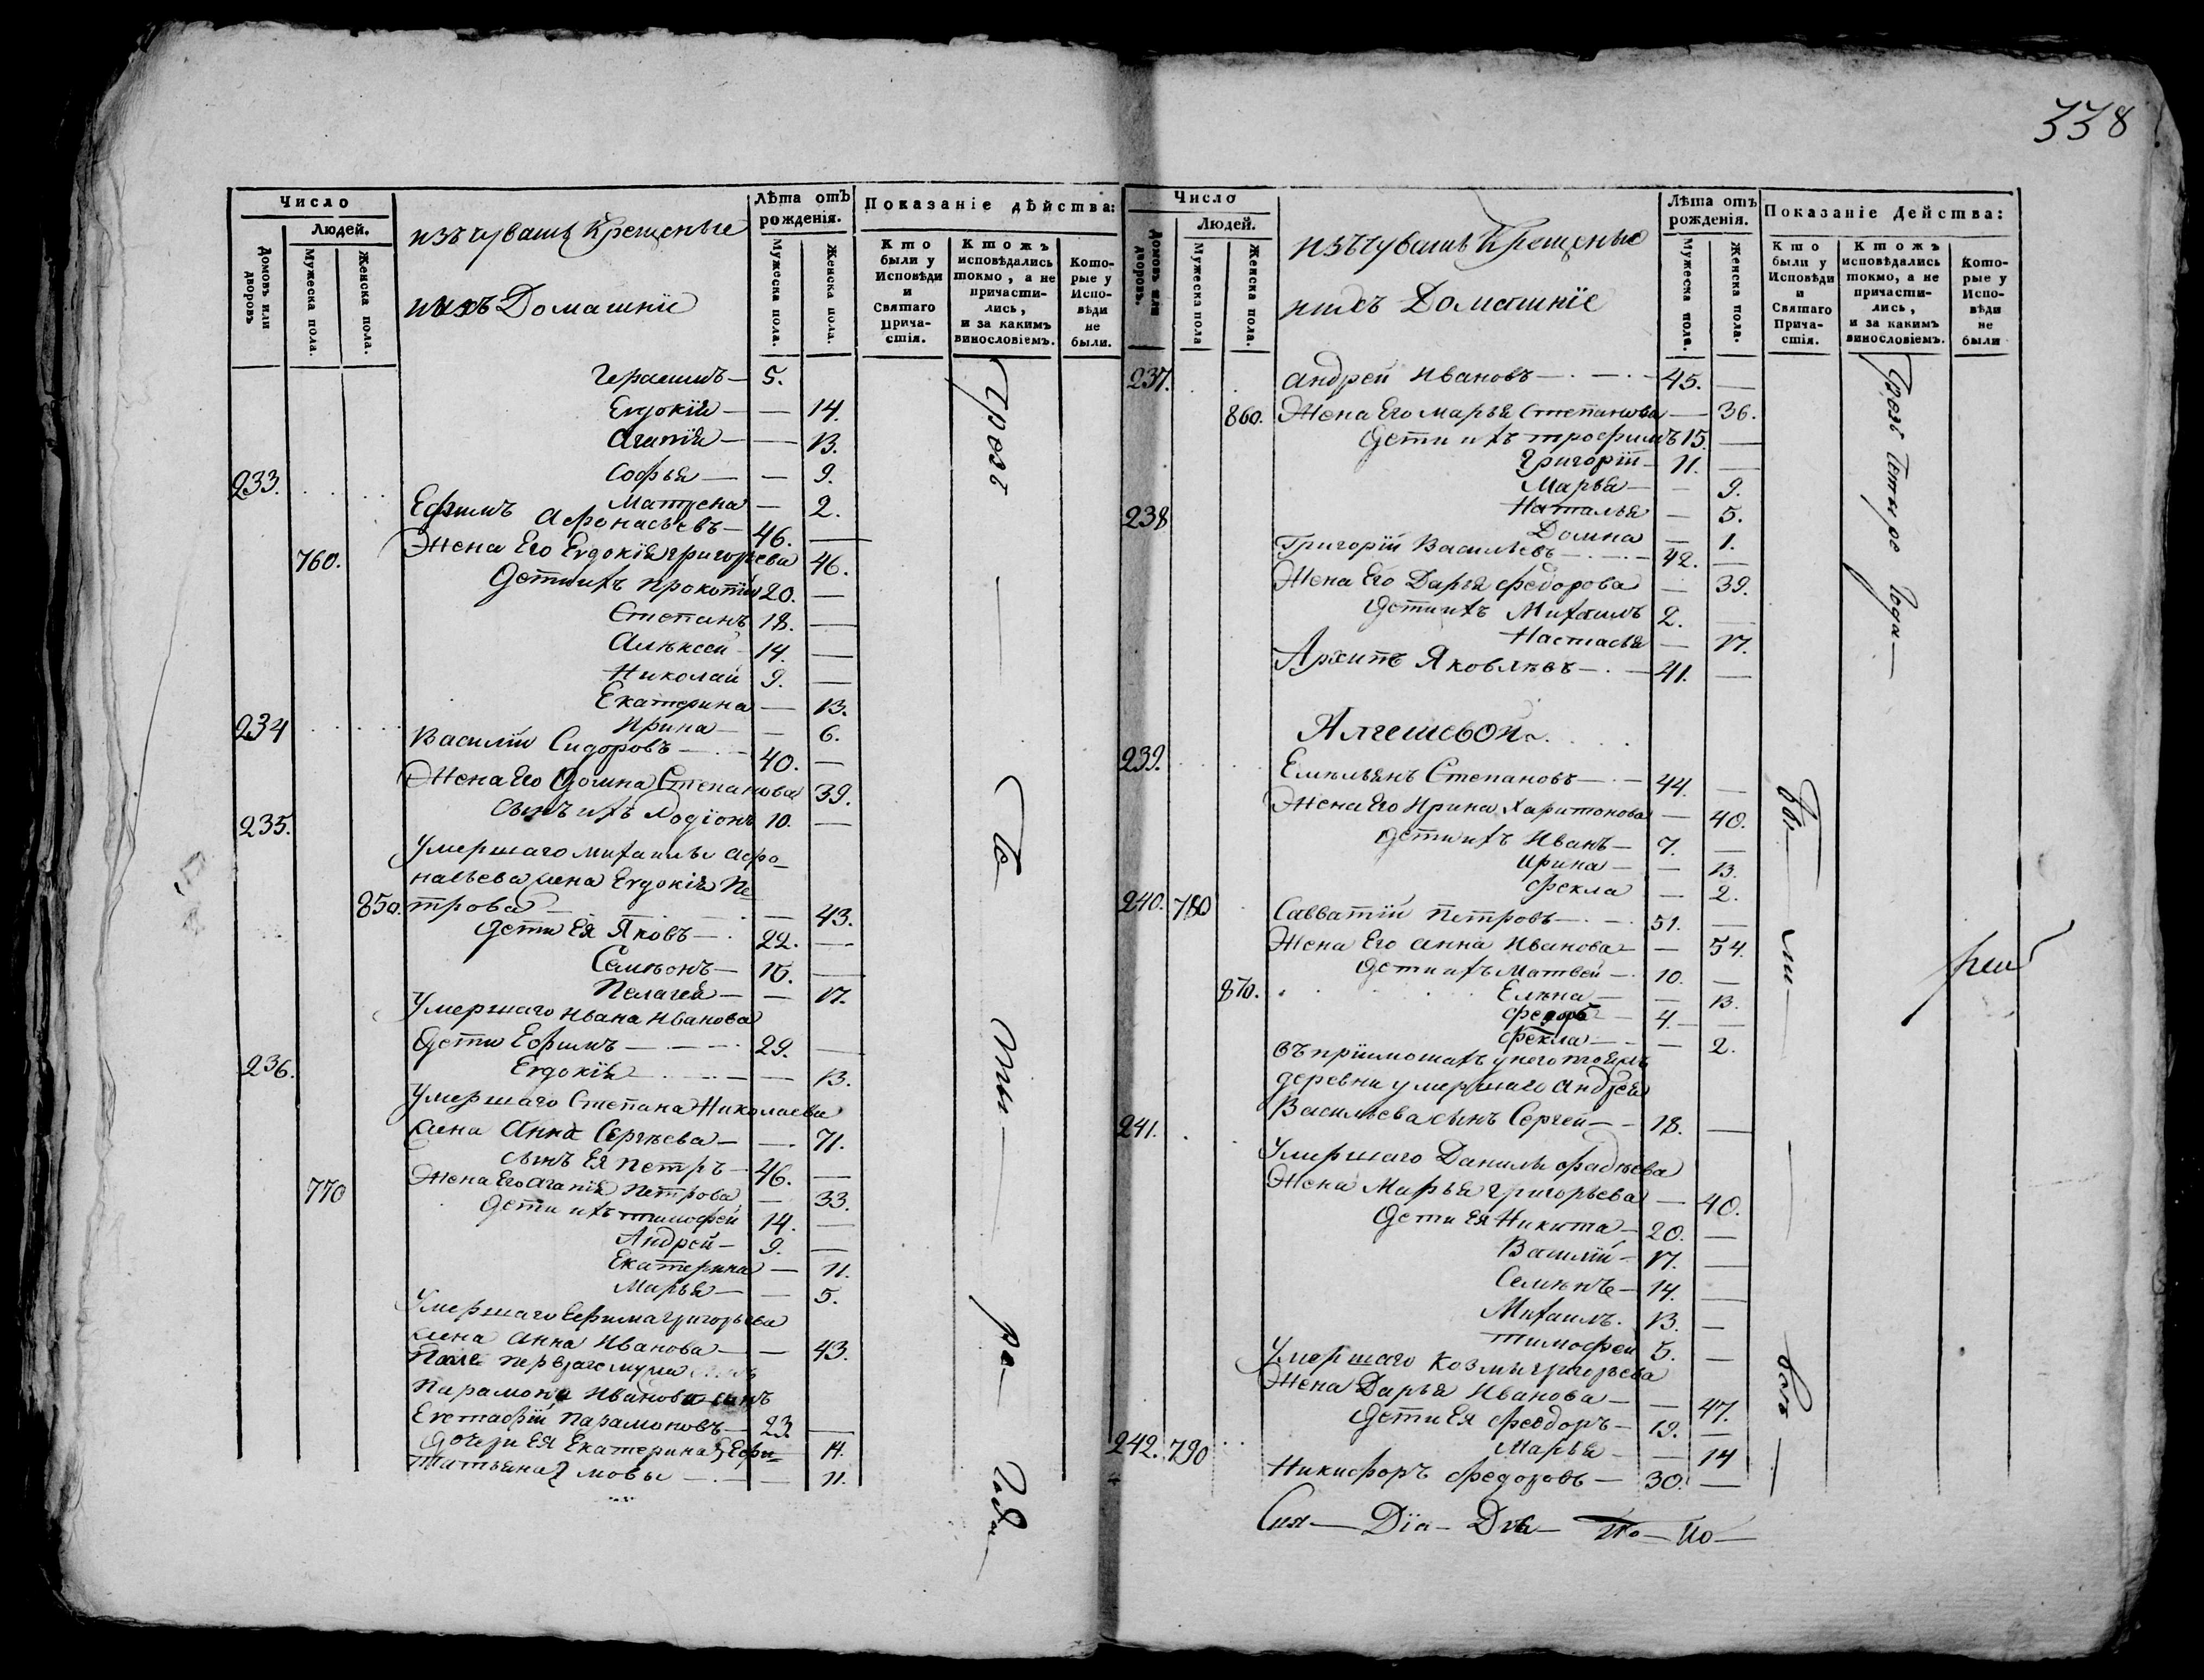 338
Число
Людей.
Домовъ или дворовъ
Мужеска пола.
Женска пола.
изъ чувашъ Крещеные
и ихъ Домашнїе
Лѣта отъ рожденія.
Мужеска пола.
Женска пола.
Показаніе дѣйства:
Кто были у Исповѣди и Святаго Причастія.
Ктожъ исповѣдались токмо, а не причастились, и за какимъ винословіемъ.
Которые у Исповѣди не были.
Герасимъ — 5.
Евдокїя — — 14.
Агапїя — — 13.
Софья — — 9.
Матрена — 2.
233. Ефимъ Афонасьевъ — 46. —
Жена Его Евдокїя григорьева 46.
760. Дети ихъ Прокопїй 20. —
Степанъ 18. —
Алѣксѣй 14. —
Николай 9. —
Екатерина — 13.
Ирина — — 6.
234 Василїй Сидоровъ — 40. —
Жена Его Домна Степанова 39.
сынъ ихъ Родїонъ 10. —
235. Умершаго михаилы афо-
насьева жена Евдокїя Пе
850. трова — — 43.
Дети Ея Яковъ — 22. —
Семѣонъ — 16. —
Пелагея — — 17.
Умершаго Ивана Иванова
Дети Ефимъ — 29. —
Евдокїя — — 13.
236. Умершаго Степана Николаева
жена Анна Сергѣева — — 71.
сынъ Ея Петръ — 46. —
Жена Его агапїя Петрова — 33.
770 Дети ихъ тимофей 14. —
Андрей — 9. —
Екатерина — 11.
Марья — — 5.
Умершаго Ефима григорьева
жена анна Иванова — — 43.
Парамона Иванова сынъ
Евстафїй Парамоновъ — 23. —
дочери Ея Екатерина } Ефи- 14.
Татьяна } мовы — — 11.
Чрозъ
Че
ты
ре
Года
Число
Людей.
Домовъ или дворовъ.
Мужеска пола
Женска пола.
изъ чувашъ Крещеные
и ихъ Домашнїе
Лѣта отъ рожденія.
Мужеска пола.
Женска пола.
Показаніе Действа:
Кто были у Исповѣди и Святаго Причастія.
Ктожъ исповѣдались токмо, а не причастились, и за какимъ винословіемъ.
Которые у Исповѣди не были
237. андрей Ивановъ — 45. —
860. Жена Его марья Степанова — 36.
Дети ихъ трофимъ 15. —
Григорїй — 11. —
Марья — — 9.
Наталья — 5.
Домна — 1.
238 Григорїй Васильевъ — 42. —
Жена Его Дарья федорова — 39.
Дети ихъ Михаилъ 2. —
Настасья — 17.
Архипъ Яковлѣвъ — 41. —
Алгешевой
239. Емельянъ Степановъ — 44. —
Жена Его Ирина Харитонова — 40.
Дети ихъ Иванъ — 7. —
Ирина — — 13.
фекла — 2.
240. 780 Савватїй Петровъ — 51. —
Жена Его анна Иванова — — 54.
Дети ихъ Матвей — 10. —
870. Елѣна — — 13.
федоръ — 4. —
фекла — — 2.
въ прїимошахъ у него тояжъ
деревни умершаго андрея
Васильева сынъ Сергей — 18. —
241. Умершаго Данилы фадѣева
Жена Марья григорьева — 40.
Дети Ея Никита — 20. —
Василїй — 17. —
Семѣнъ — 14. —
Михаилъ. 13. —
тимофей 5. —
Умершаго Козмы григорьева
Жена Дарья Иванова — — 47.
Дети Ея феодоръ — 19. —
Марья — — 14
242. 790 Никифоръ федоровъ — 30. —
Чрезъ Четыре Года —
бы — ли —
Сия — Дїа — Дъ — По — Но —